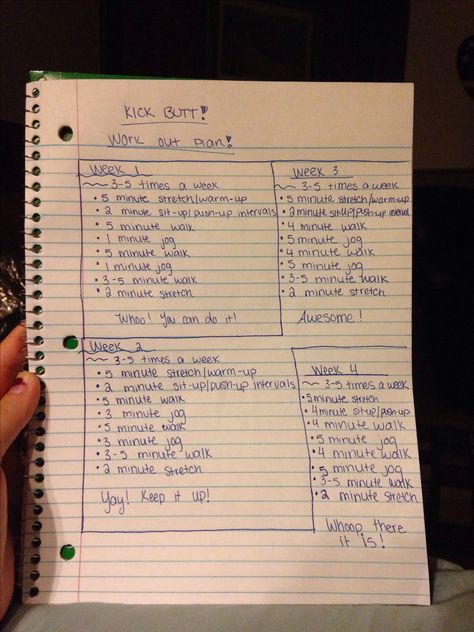 KICK BUTT!
Work out plan!
Week 1
~ 3-5 times a week
• 5 minute stretch/warm-up
• 2 minute sit-up/push-up intervals
• 5 minute walk
• 1 minute jog
• 5 minute walk
• 1 minute jog
• 3-5 minute walk
• 2 minute stretch
Whoo! You can do it!
Week 2
~ 3-5 times a week
• 5 minute stretch/warm-up
• 2 minute sit-up/push-up intervals
• 5 minute walk
• 3 minute jog
• 5 minute walk
• 3 minute jog
• 3-5 minute walk
• 2 minute stretch
Yay! Keep it up!
Week 3
~ 3-5 times a week
• 5 minute stretch/warm-up
• 2 minute sit-up/push-up interval
• 4 minute walk
• 5 minute jog
• 4 minute walk
• 5 minute jog
• 3-5 minute walk
• 2 minute stretch
Awesome!
Week 4
~ 3-5 times a week
• 5 minute stretch
• 4 minute sit-up/push-up
• 4 minute walk
• 5 minute jog
• 4 minute walk
• 5 minute jog
• 3-5 minute walk
• 2 minute stretch
Whoop there
it is!